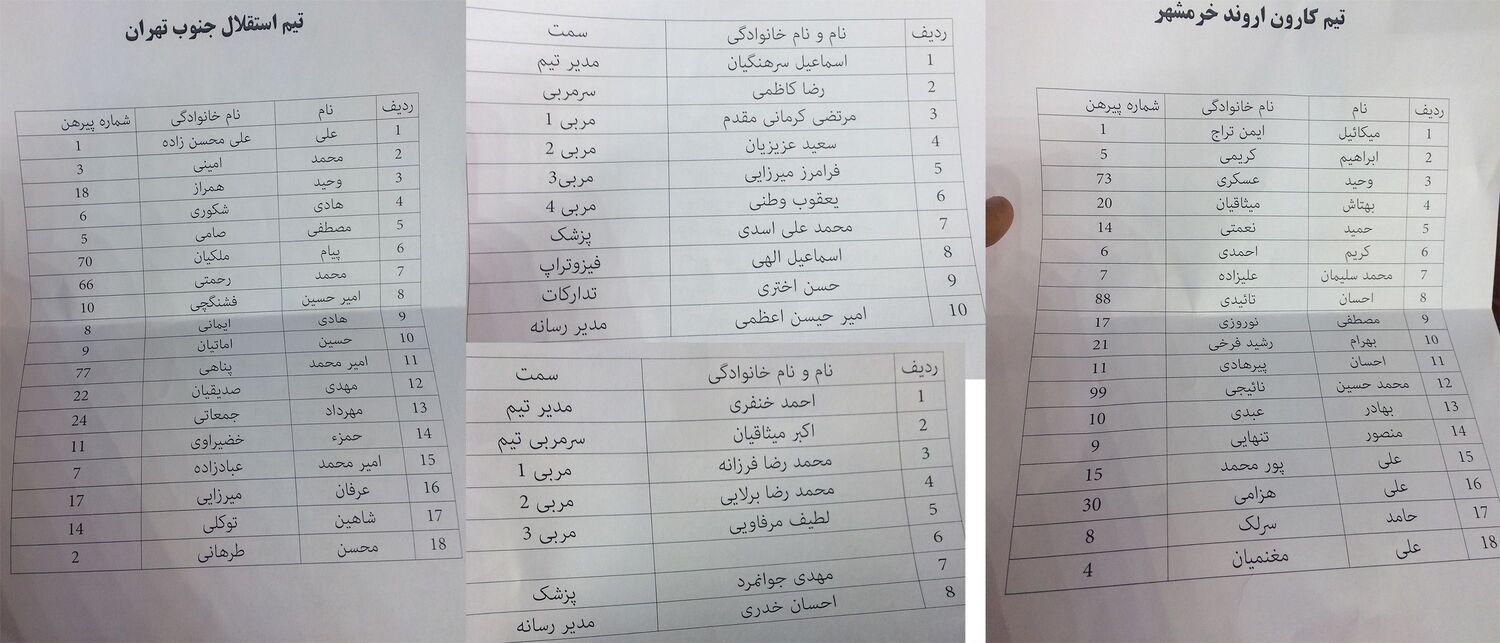 تیم استقلال جنوب تهران
ردیف نام نام خانوادگی شماره پیرهن
1 علی علی محسن زاده 1
2 محمد امینی 3
3 وحید همراز 18
4 هادی شکوری 6
5 مصطفی صامی 5
6 پیام ملکیان 70
7 محمد رحمتی 66
8 امیر حسین فشنگچی 10
9 هادی ایمانی 8
10 حسین اماتیان 9
11 امیر محمد پناهی 77
12 مهدی صدیقیان 22
13 مهرداد جمعاتی 24
14 حمزء خضیراوی 11
15 امیر محمد عبادزاده 7
16 عرفان میرزایی 17
17 شاهین توکلی 14
18 محسن طرهانی 2
ردیف نام و نام خانوادگی سمت
1 اسماعیل سرهنگیان مدیر تیم
2 رضا کاظمی سرمربی
3 مرتضی کرمانی مقدم مربی 1
4 سعید عزیزیان مربی 2
5 فرامرز میرزایی مربی3
6 یعقوب وطنی مربی 4
7 محمد علی اسدی پزشک
8 اسماعیل الهی فیزوتراپ
9 حسن اختری تدارکات
10 امیر حیسن اعظمی مدیر رسانه
ردیف نام و نام خانوادگی سمت
1 احمد خنفری مدیر تیم
2 اکبر میثاقیان سرمربی تیم
3 محمد رضا فرزانه مربی 1
4 محمد رضا برلایی مربی 2
5 لطیف مرفاویی مربی 3
6
7 مهدی جوانمرد پزشک
8 احسان خدری مدیر رسانه
تیم کارون اروند خرمشهر
ردیف نام نام خانوادگی شماره پیرهن
1 میکائیل ایمن تراج 1
2 ابراهیم کریمی 5
3 وحید عسکری 73
4 بهتاش میثاقیان 20
5 حمید نعمتی 14
6 کریم احمدی 6
7 محمد سلیمان علیزاده 7
8 احسان تائیدی 88
9 مصطفی نوروزی 17
10 بهرام رشید فرخی 21
11 احسان پیرهادی 11
12 محمد حسین نائیجی 99
13 بهادر عبدی 10
14 منصور تنهایی 9
15 علی پور محمد 15
16 علی هزامی 30
17 حامد سرلک 8
18 علی مغنمیان 4